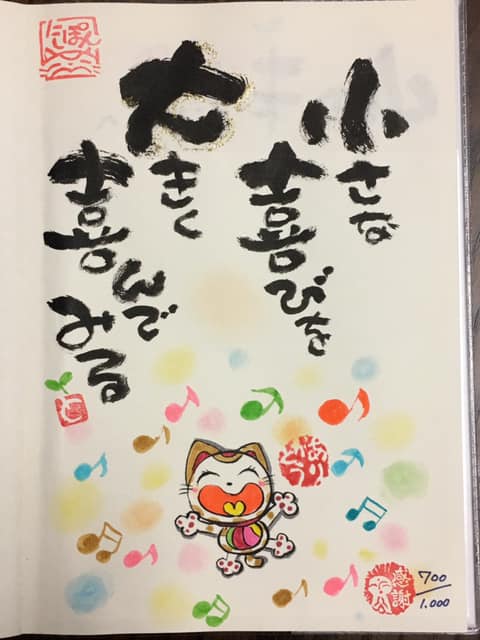 小さな
喜びを
大きく
喜んで
みる
感謝
700
1.000